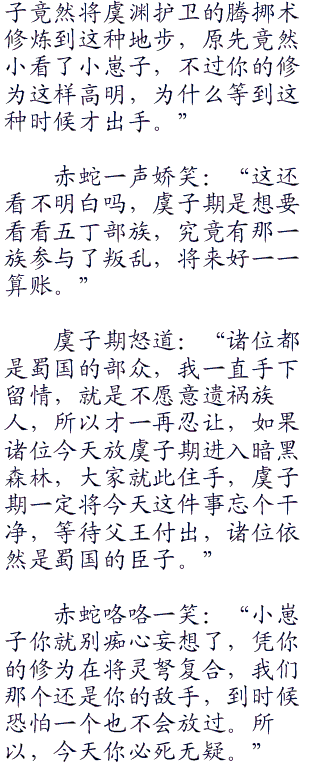 子竟然将虞渊护卫的腾挪术
修炼到这种地步，原先竟然
小看了小崽子，不过你的修
为这样高明，为什么等到这
种时候才出手。”
赤蛇一声娇笑：“这还
看不明白吗，虞子期是想要
看看五丁部族，究竟有那一
族参与了叛乱，将来好一一
算账。”
虞子期怒道：“诸位都
是蜀国的部众，我一直手下
留情，就是不愿意遗祸族
人，所以才一再忍让，如果
诸位今天放虞子期进入暗黑
森林，大家就此住手，虞子
期一定将今天这件事忘个干
净，等待父王付出，诸位依
然是蜀国的臣子。”
赤蛇咯咯一笑：“小崽
子你就别痴心妄想了，凭你
的修为在将灵弩复合，我们
那个还是你的敌手，到时候
恐怕一个也不会放过。所
以，今天你必死无疑。”